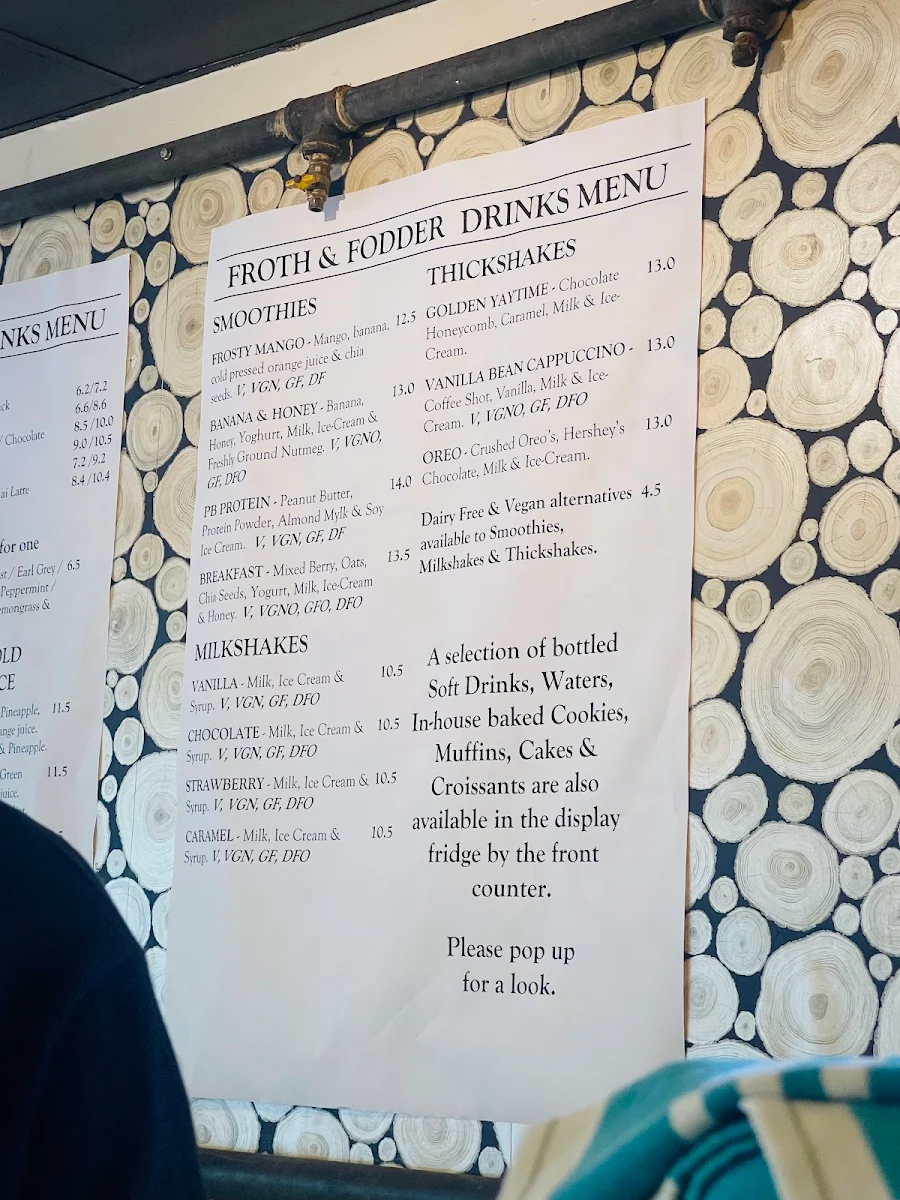 NKS MENU
6.2/7.2
ck 6.6/8.6
8.5 /10.0
/ Chocolate 9.0 /10.5
7.2 /9.2
ai Latte 8.4 /10.4
for one
st / Earl Grey / 6.5
Peppermint /
emongrass &
OLD
CE
Pineapple, 11.5
nge juice.
& Pineapple.
Green 11.5
juice.
FROTH & FODDER DRINKS MENU
SMOOTHIES
FROSTY MANGO - Mango, banana, 12.5
cold pressed orange juice & chia
seeds. V, VGN, GF, DF
BANANA & HONEY - Banana, 13.0
Honey, Yoghurt, Milk, Ice-Cream &
Freshly Ground Nutmeg. V, VGNO,
GF, DFO
PB PROTEIN - Peanut Butter, 14.0
Protein Powder, Almond Mylk & Soy
Ice Cream. V, VGN, GF, DF
BREAKFAST - Mixed Berry, Oats, 13.5
Chia Seeds, Yogurt, Milk, Ice-Cream
& Honey. V, VGNO, GFO, DFO
MILKSHAKES
VANILLA - Milk, Ice Cream & 10.5
Syrup. V, VGN, GF, DFO
CHOCOLATE - Milk, Ice Cream & 10.5
Syrup. V, VGN, GF, DFO
STRAWBERRY - Milk, Ice Cream & 10.5
Syrup. V, VGN, GF, DFO
CARAMEL - Milk, Ice Cream & 10.5
Syrup. V, VGN, GF, DFO
THICKSHAKES
GOLDEN YAYTIME - Chocolate 13.0
Honeycomb, Caramel, Milk & Ice-
Cream.
VANILLA BEAN CAPPUCCINO - 13.0
Coffee Shot, Vanilla, Milk & Ice-
Cream. V, VGNO, GF, DFO
OREO - Crushed Oreo's, Hershey's 13.0
Chocolate, Milk & Ice-Cream.
Dairy Free & Vegan alternatives 4.5
available to Smoothies,
Milkshakes & Thickshakes.
A selection of bottled
Soft Drinks, Waters,
In-house baked Cookies,
Muffins, Cakes &
Croissants are also
available in the display
fridge by the front
counter.
Please pop up
for a look.